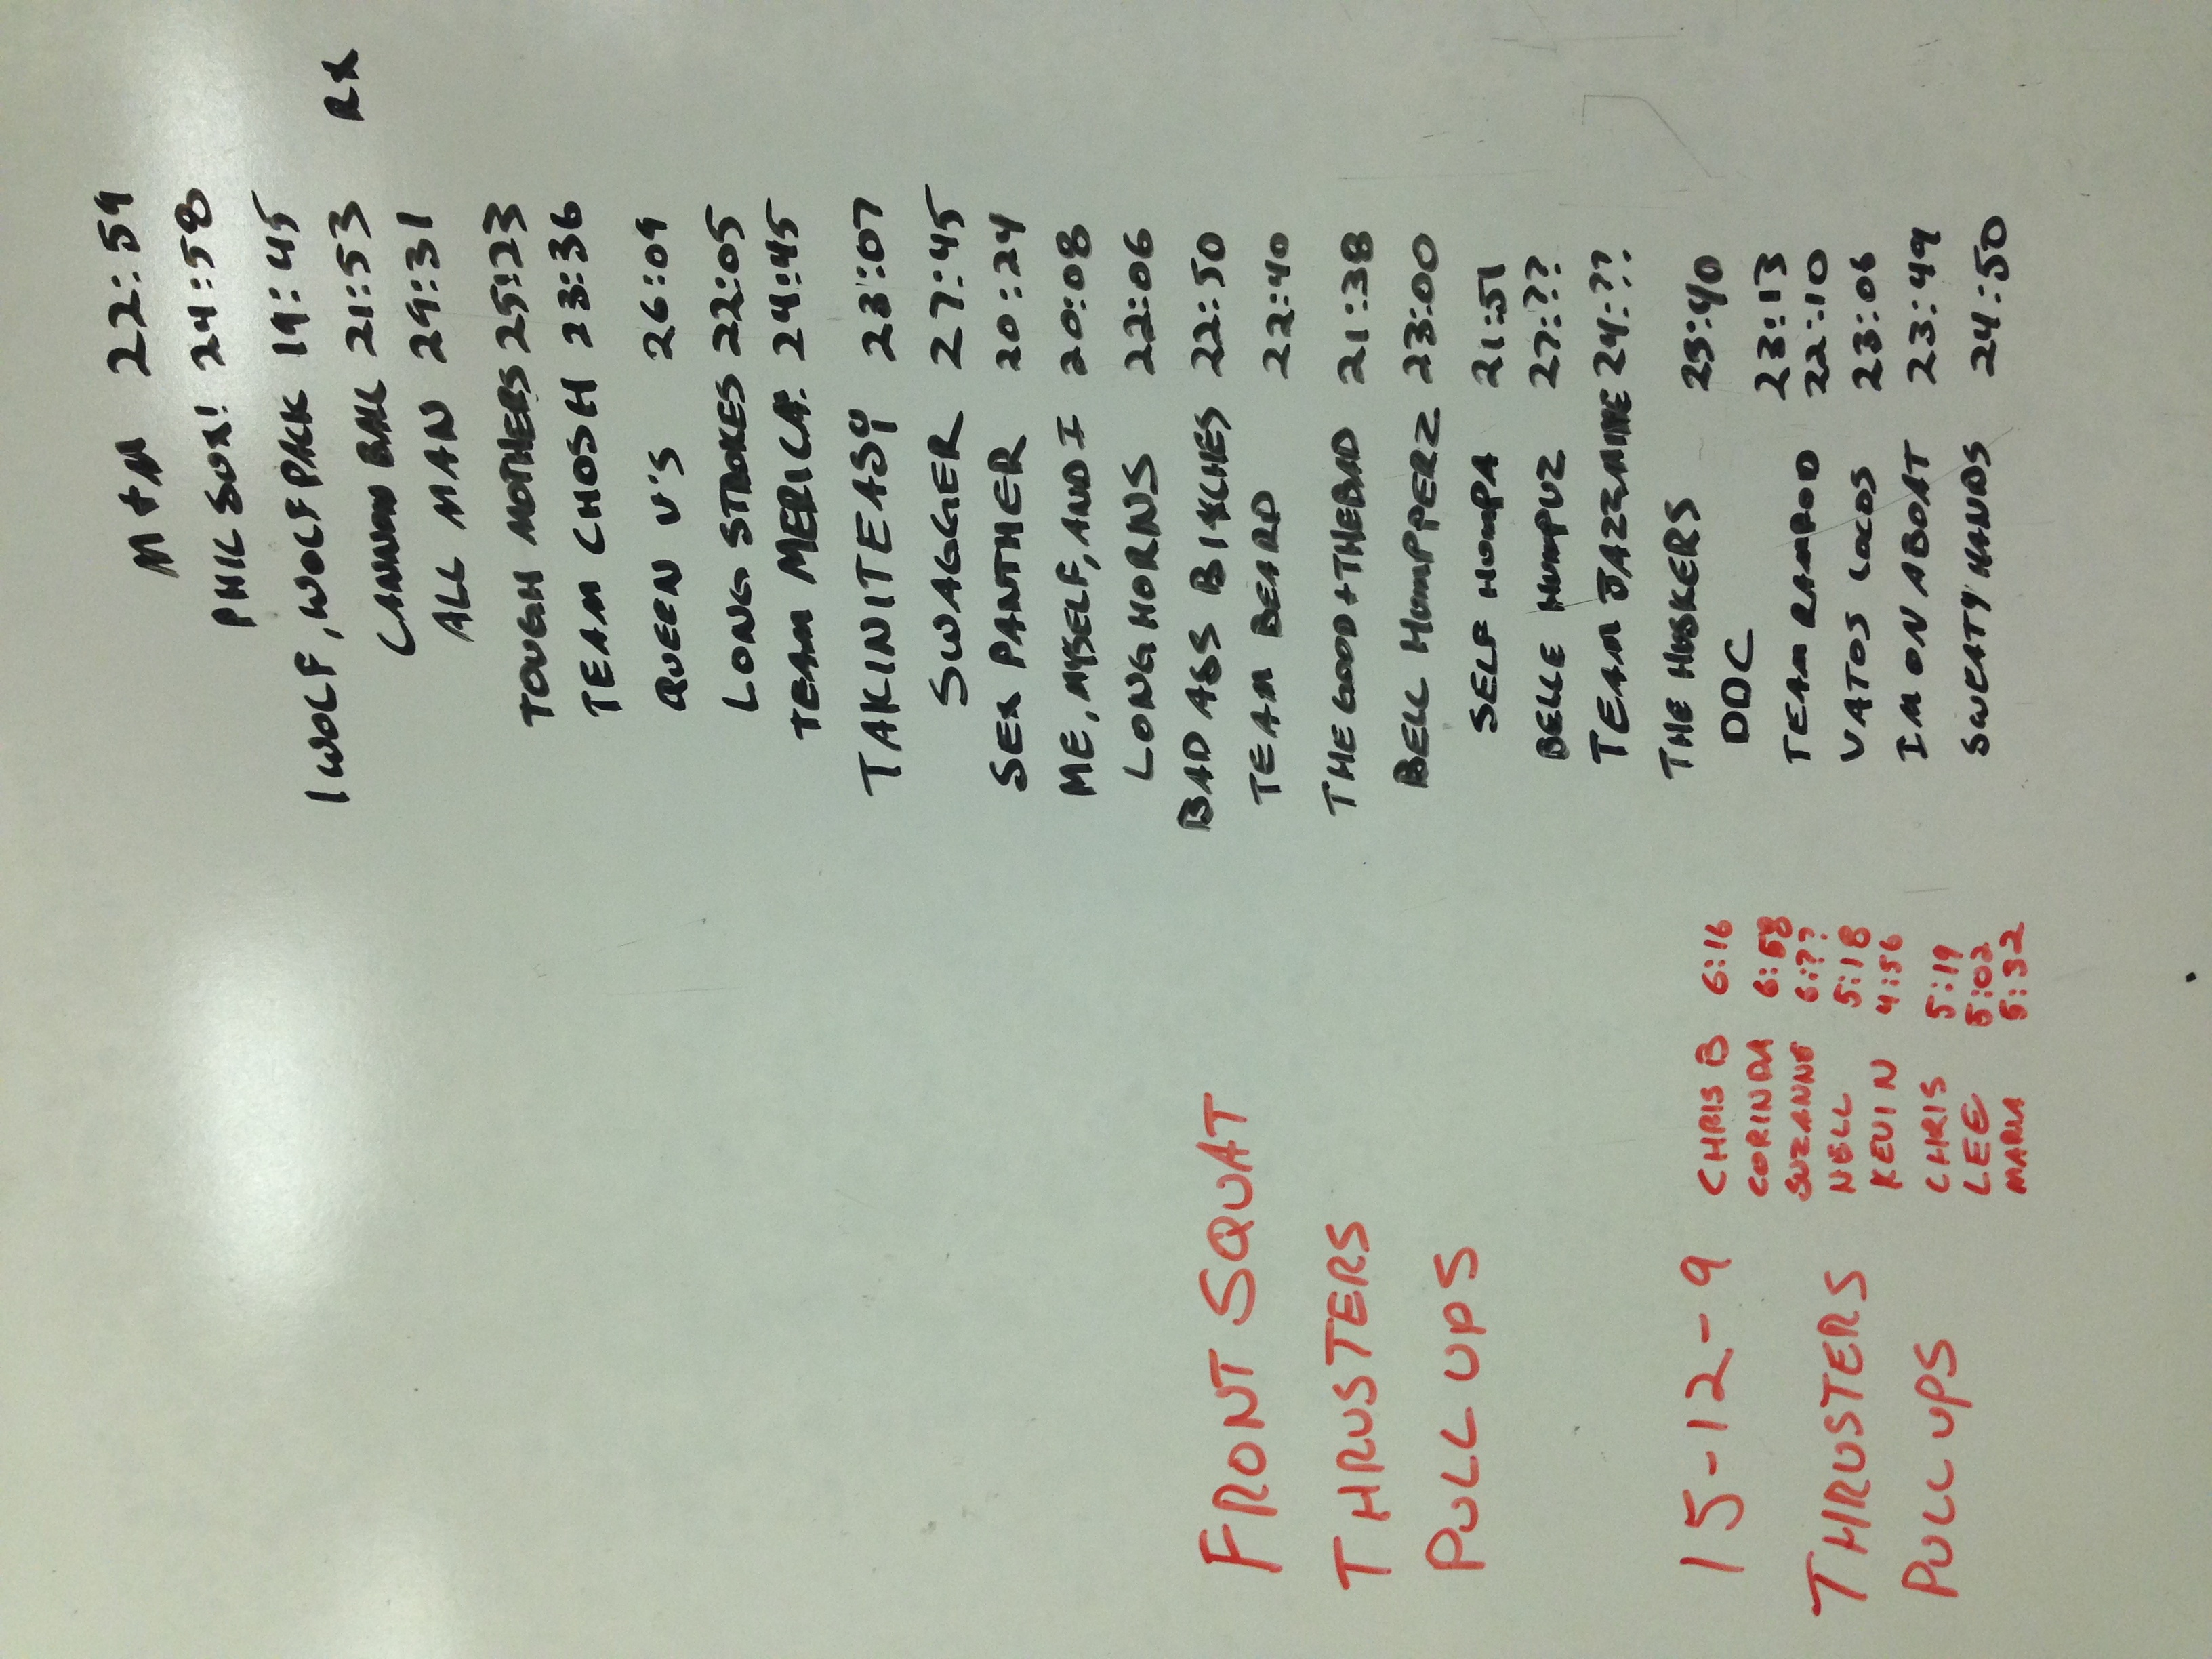 M+M 22:59
PHIL SUX! 24:58
1 WOLF, WOLF PACK 19:45
CANNON BALL 21:53 RX
ALL MAN 29:31
TOUGH MOTHERS 25:23
TEAM CHOSH 23:36
QUEEN V'S 26:09
LONG STROKES 22:05
TEAM MERICA. 24:45
TAKINITEASY 23:07
SWAGGER 27:45
SEX PANTHER 20:24
ME, MYSELF, AND I 20:08
LONGHORNS 22:06
BAD ASS BITCHES 22:50
TEAM BEARD 22:40
THE GOOD + THE BAD 21:38
BELL HUMPPERZ 23:00
SELF HUMPA 21:51
BELLE HUMPUZ 27:??
TEAM JAZZMINE 24:??
THE HUSKERS 25:40
DDC
TEAM RAMROD 23:13
22:10
VATOS LOCOS 23:06
IM ON A BOAT 23:49
SWEATY HANDS 24:50
FRONT SQUAT
THRUSTERS
PULL UPS
15-12-9
THRUSTERS
PULL UPS
CHRIS B 6:16
CORINDA 6:58
SUZANNE 6:??
NELL 5:18
KEVIN 4:56
CHRIS 5:19
LEE 5:02
MARIA 5:32